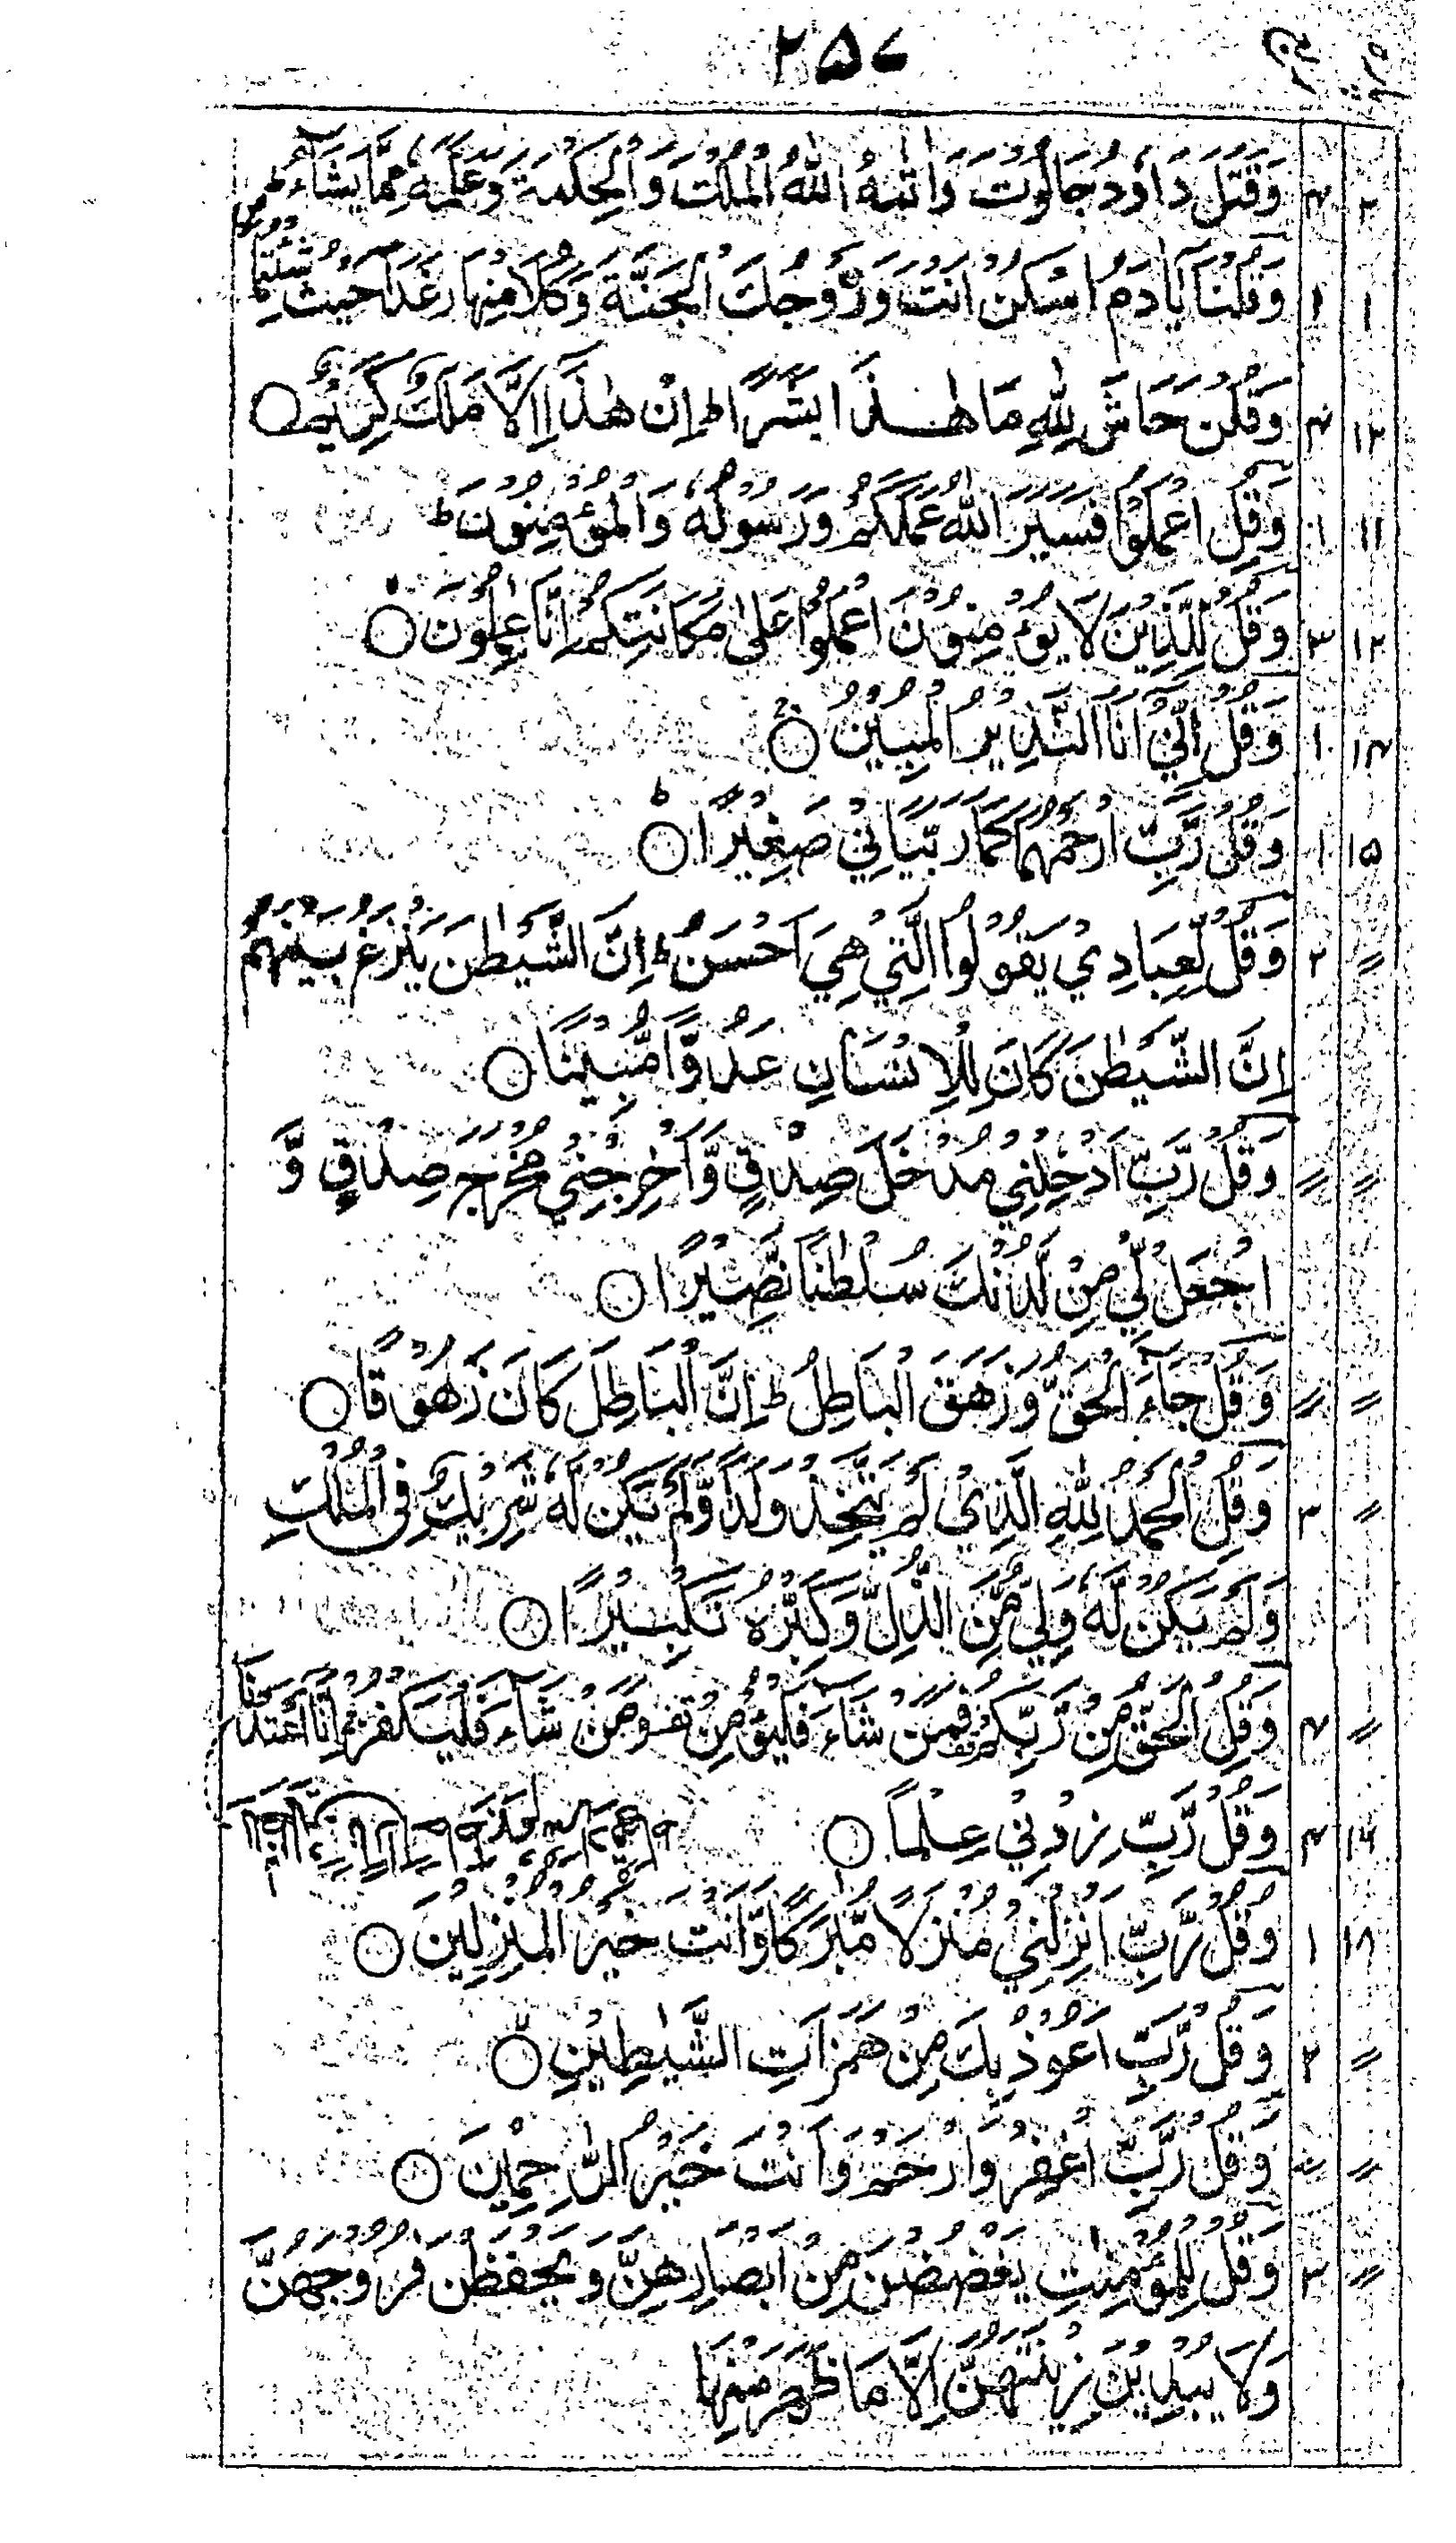 ۲۵۷
پاره ربع
۲ ۴ وَقَتَلَ دَاوُدُ جَالُوتَ وَاٰتٰىهُ اللّٰهُ الْمُلْكَ وَالْحِكْمَةَ وَعَلَّمَهٗ مِمَّا يَشَآءُ ؕ
۱ ۱ وَقُلْنَا يَآاٰدَمُ اسْكُنْ اَنْتَ وَزَوْجُكَ الْجَنَّةَ وَكُلَا مِنْهَا رَغَدًا حَيْثُ شِئْتُمَا
۱۲ ۴ وَقُلْنَ حَاشَ لِلّٰهِ مَا هٰذَا بَشَرًا ؕ اِنْ هٰذَا اِلَّا مَلَكٌ كَرِيْمٌ ○
۱۱ ۱ وَقُلِ اعْمَلُوْا فَسَيَرَ اللّٰهُ عَمَلَكُمْ وَرَسُوْلُهٗ وَالْمُؤْمِنُوْنَ ؕ
۱۲ ۳ وَقُلْ لِلَّذِيْنَ لَا يُؤْمِنُوْنَ اعْمَلُوْا عَلٰى مَكَانَتِكُمْ اِنَّا عٰمِلُوْنَ ○
۱۴ ۱ وَقُلْ اِنِّيْ اَنَا النَّذِيْرُ الْمُبِيْنُ ○
۱۵ ۱ وَقُلْ رَّبِّ ارْحَمْهُمَا كَمَا رَبَّيَانِيْ صَغِيْرًا ○
〃 ۲ وَقُلْ لِّعِبَادِيْ يَقُوْلُوا الَّتِيْ هِيَ اَحْسَنُ ؕ اِنَّ الشَّيْطٰنَ يَنْزَغُ بَيْنَهُمْ
اِنَّ الشَّيْطٰنَ كَانَ لِلْاِنْسَانِ عَدُوًّا مُّبِيْنًا ○
〃 〃 وَقُلْ رَّبِّ اَدْخِلْنِيْ مُدْخَلَ صِدْقٍ وَّاَخْرِجْنِيْ مُخْرَجَ صِدْقٍ وَّ
اجْعَلْ لِّيْ مِنْ لَّدُنْكَ سُلْطٰنًا نَّصِيْرًا ○
〃 〃 وَقُلْ جَآءَ الْحَقُّ وَزَهَقَ الْبَاطِلُ ؕ اِنَّ الْبَاطِلَ كَانَ زَهُوْقًا ○
〃 ۳ وَقُلِ الْحَمْدُ لِلّٰهِ الَّذِيْ لَمْ يَتَّخِذْ وَلَدًا وَّلَمْ يَكُنْ لَّهٗ شَرِيْكٌ فِى الْمُلْكِ
وَلَمْ يَكُنْ لَّهٗ وَلِيٌّ مِّنَ الذُّلِّ وَكَبِّرْهُ تَكْبِيْرًا ○
〃 ۴ وَقُلِ الْحَقُّ مِنْ رَّبِّكُمْ قف فَمَنْ شَآءَ فَلْيُؤْمِنْ وَّمَنْ شَآءَ فَلْيَكْفُرْ اِنَّا اَعْتَدْنَا
۱۶ ۴ وَقُلْ رَّبِّ زِدْنِيْ عِلْمًا ○
۱۸ ۱ وَقُلْ رَّبِّ اَنْزِلْنِيْ مُنْزَلًا مُّبٰرَكًا وَّاَنْتَ خَيْرُ الْمُنْزِلِيْنَ ○
〃 ۲ وَقُلْ رَّبِّ اَعُوْذُ بِكَ مِنْ هَمَزَاتِ الشَّيٰطِيْنِ ○
〃 〃 وَقُلْ رَّبِّ اغْفِرْ وَارْحَمْ وَاَنْتَ خَيْرُ الرّٰحِمِيْنَ ○
〃 ۳ وَقُلْ لِّلْمُؤْمِنٰتِ يَغْضُضْنَ مِنْ اَبْصَارِهِنَّ وَيَحْفَظْنَ فُرُوْجَهُنَّ
وَلَا يُبْدِيْنَ زِيْنَتَهُنَّ اِلَّا مَا ظَهَرَ مِنْهَا